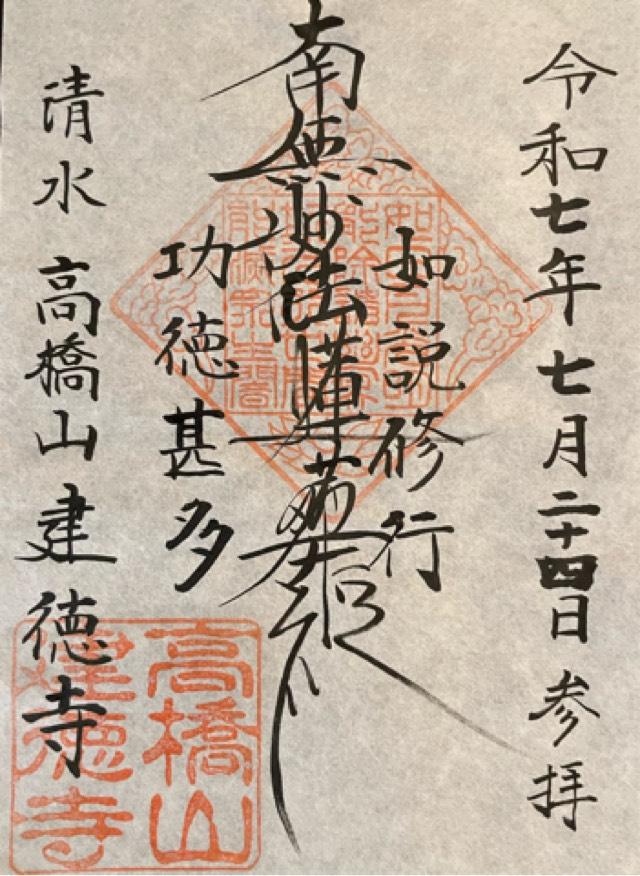 令和七年七月二十四日参拝
如説修行
南無妙法蓮華経
功徳甚多
清水 高橋山 建徳寺
高橋山
建徳寺